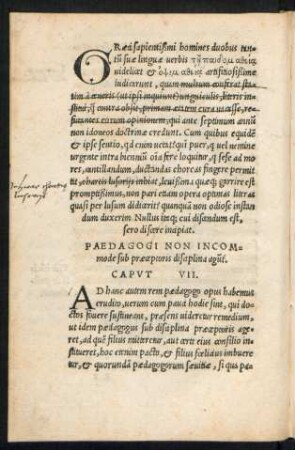 GRæci sapientissimi homines duobus tan
tū suæ linguæ uerbis
uidelicet & artificiosissime
indicarunt, quam multum
à ueteris (ut ipsi inquiunt) unguiculis, literis insti
tutis, si contra
eorum opinionem, qui ante septimum annū
non idoneos doctrinæ credunt. Cum quibus equidē
& ipse sentio, qd eum uereat̄ qui puer, uel nemine
urgente intra biennium oīa fere loquitur, & sese ad mo
res, antillandum, ductandas choreas fingere permit
tit, chartis lusorijs imbiat, leuissima quæq; garrire est
promptissimus, non pari etiam opera optimas literas
quasi per lusum didicerit quanquam non odiose instan
dum duxerim. Nullus itaq; cui discendum est,
sero discere incipiat.
PAEDAGOGI NON INCOM-
mode sub præceptoris disciplina agūt.
CAPVT VII.
AD hanc autem rem pædagogo opus habemus
erudito, uerum cum pauci hodie sint, qui do
ctos fouere sustineant, præsens uideretur remedium,
ut idem pædagogus sub disciplina præceptoris age
ret, ad quē filius mitteretur, aut certe eius consilio in
stitueret, hoc etenim pacto, & filius fœlicius imbuere
tur, & quorundā pædagogorum sæuitiæ, si qui pa-